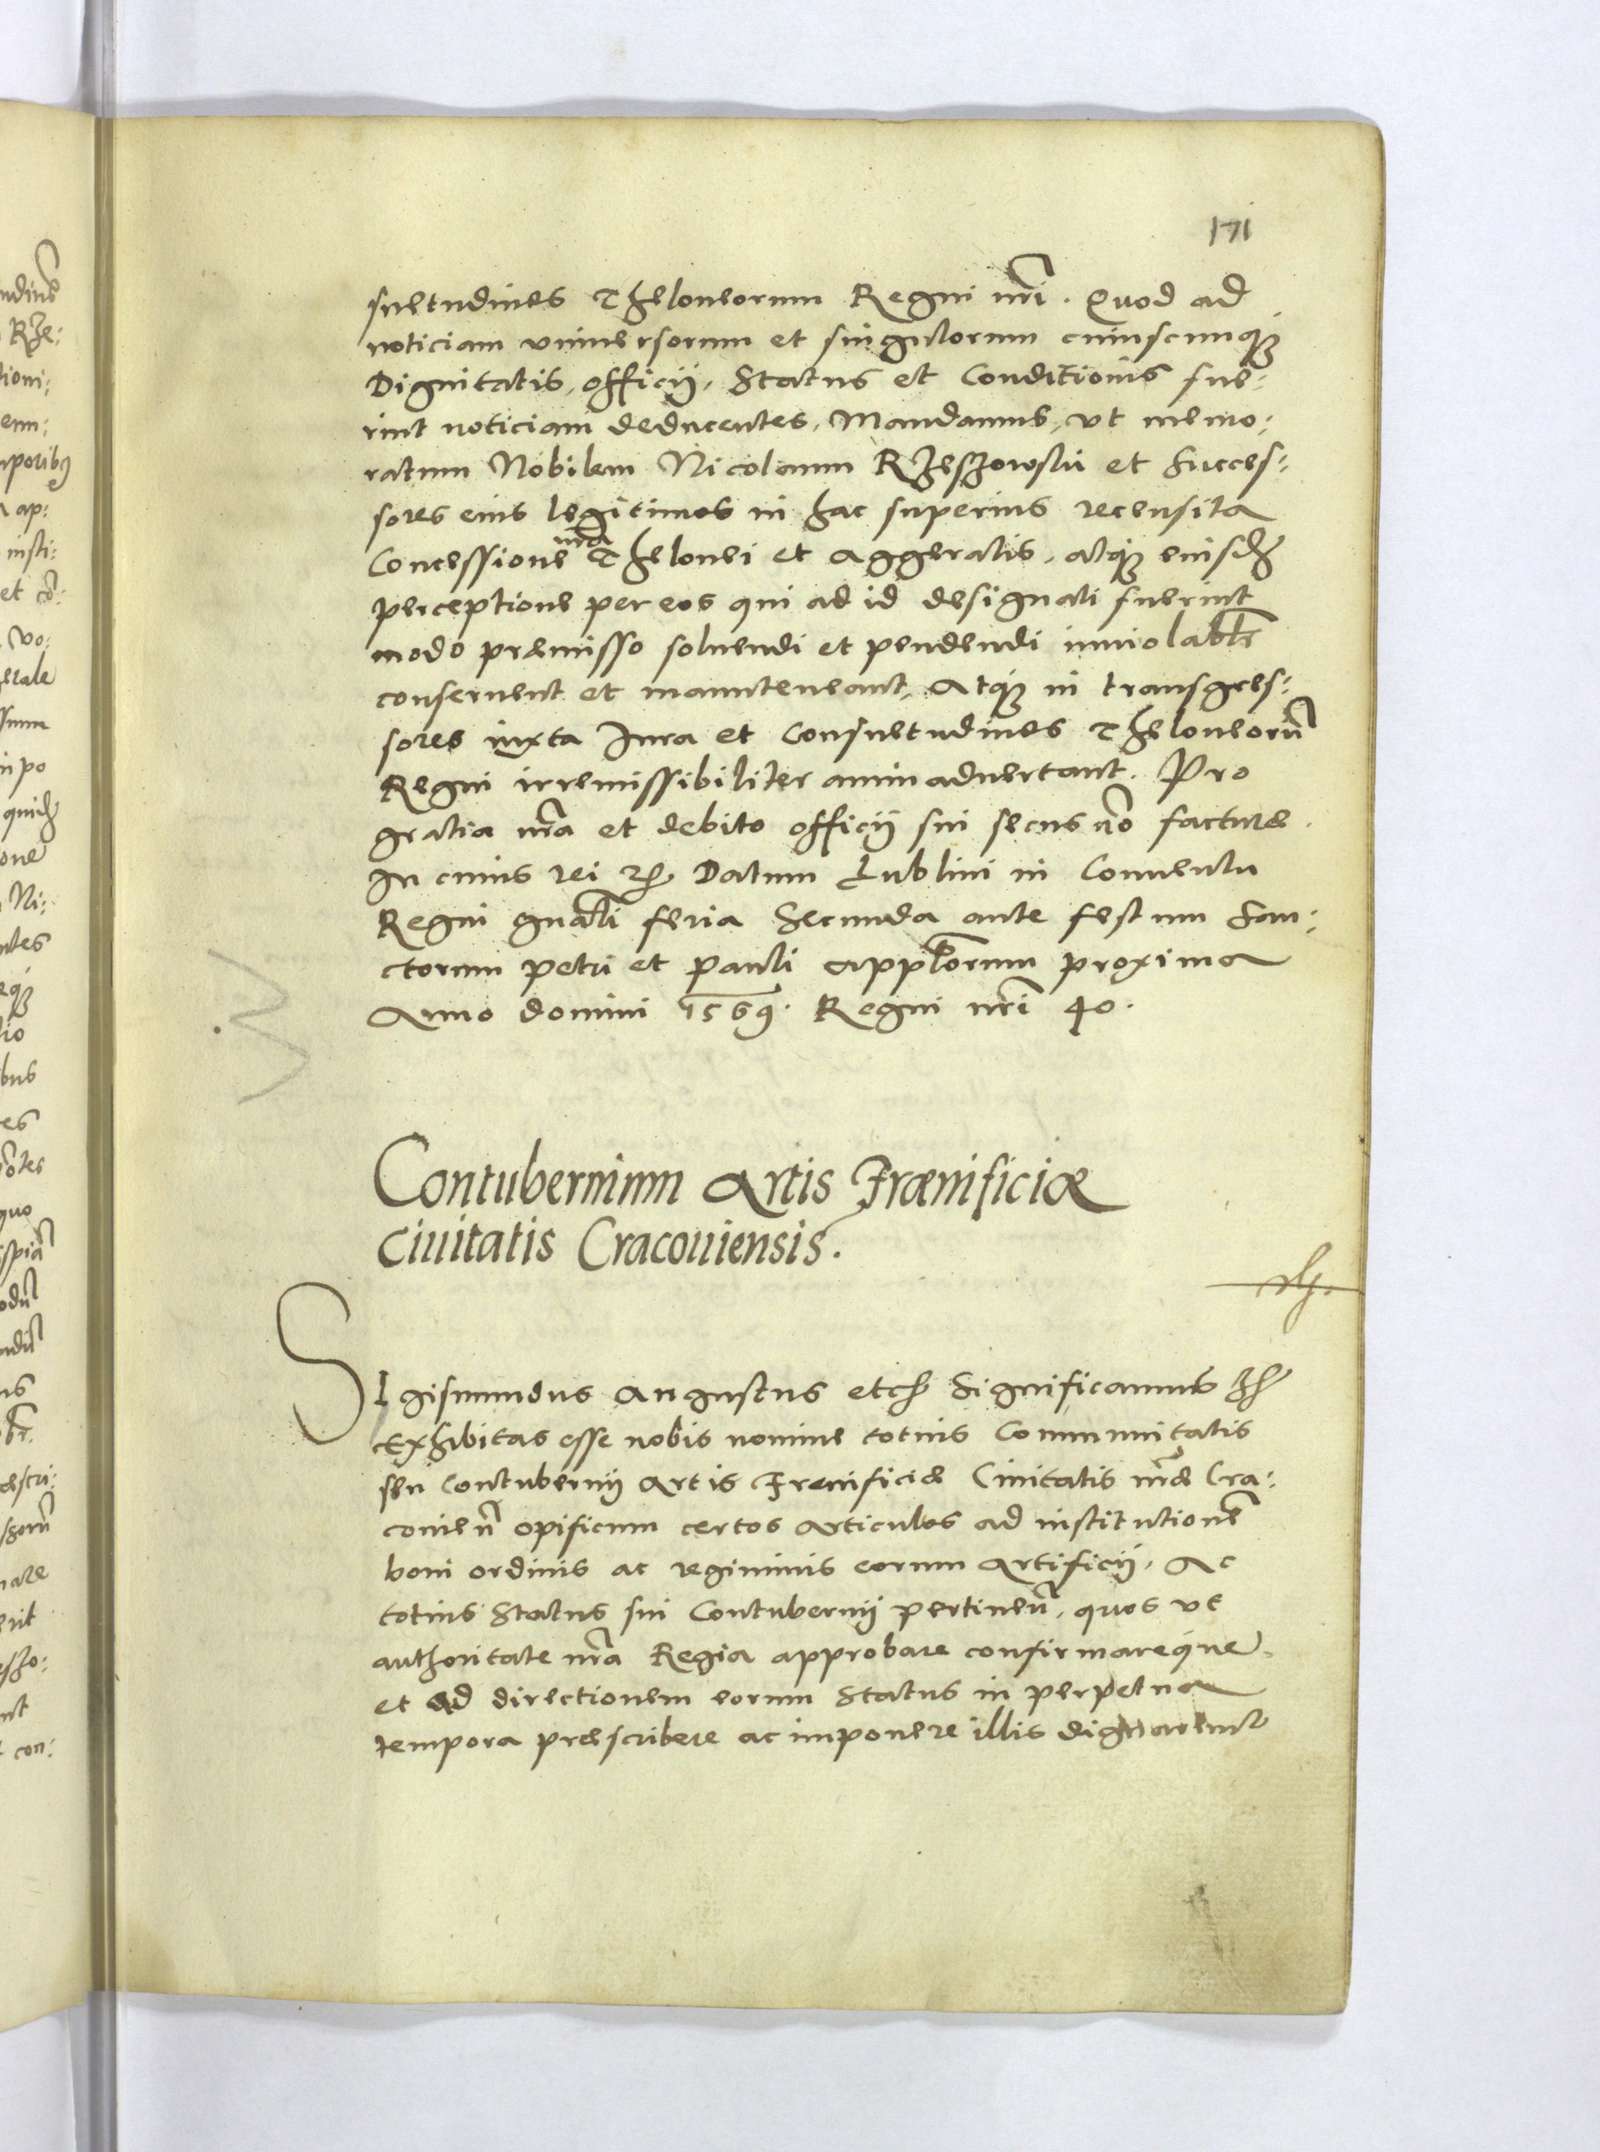 171
suetudines Theloneorum Regni nri. Quod ad
noticiam vniuersorum et singulorum cuiuscunq3
Dignitatis, officij, Status et Conditionis fue-
rint noticiam deducentes, Mandamus, vt memo-
ratum Nobilem Nicolaum Rzeszowski et Succes-
sores eius legitimos in hac superius recensita
Concessione nra Thelonei et Aggeratis, atq3 eiusd
perceptione per eos qui ad id designati fuerint
modo præmisso soluendi et pendendi inuiolabtr
conseruent et manuteneant, Atq3 in transgres-
sores iuxta Jura et Consuetudines Theloneoru
Regni irremissibiliter animaduertant. Pro
gratia nra et debito officij sui secus no facture.
In cuius rei Datum Lublini in Conuentu
Regni gnali feria Secunda ante festum San-
ctorum Petri et Pauli Applorum proxima
Anno domini 1569. Regni nri 40.
Contubernium Artis Frænificiæ
Ciuitatis Cracouiensis.
SIgismundus Augustus etc Significamus
Exhibitas esse nobis nomine totius Communitatis
seu Contubernij Artis Frenificiæ Ciuitatis nræ Cra-
couien opificum certos Articulos ad institutione
boni ordinis ac regiminis eorum Artificij, Ac
totius Status sui Contubernij pertinen, quos vt
authoritate nra Regia approbare confirmareque.
et ad directionem eorum Status in perpetua
tempora præscribere ac imponere illis dignaremur